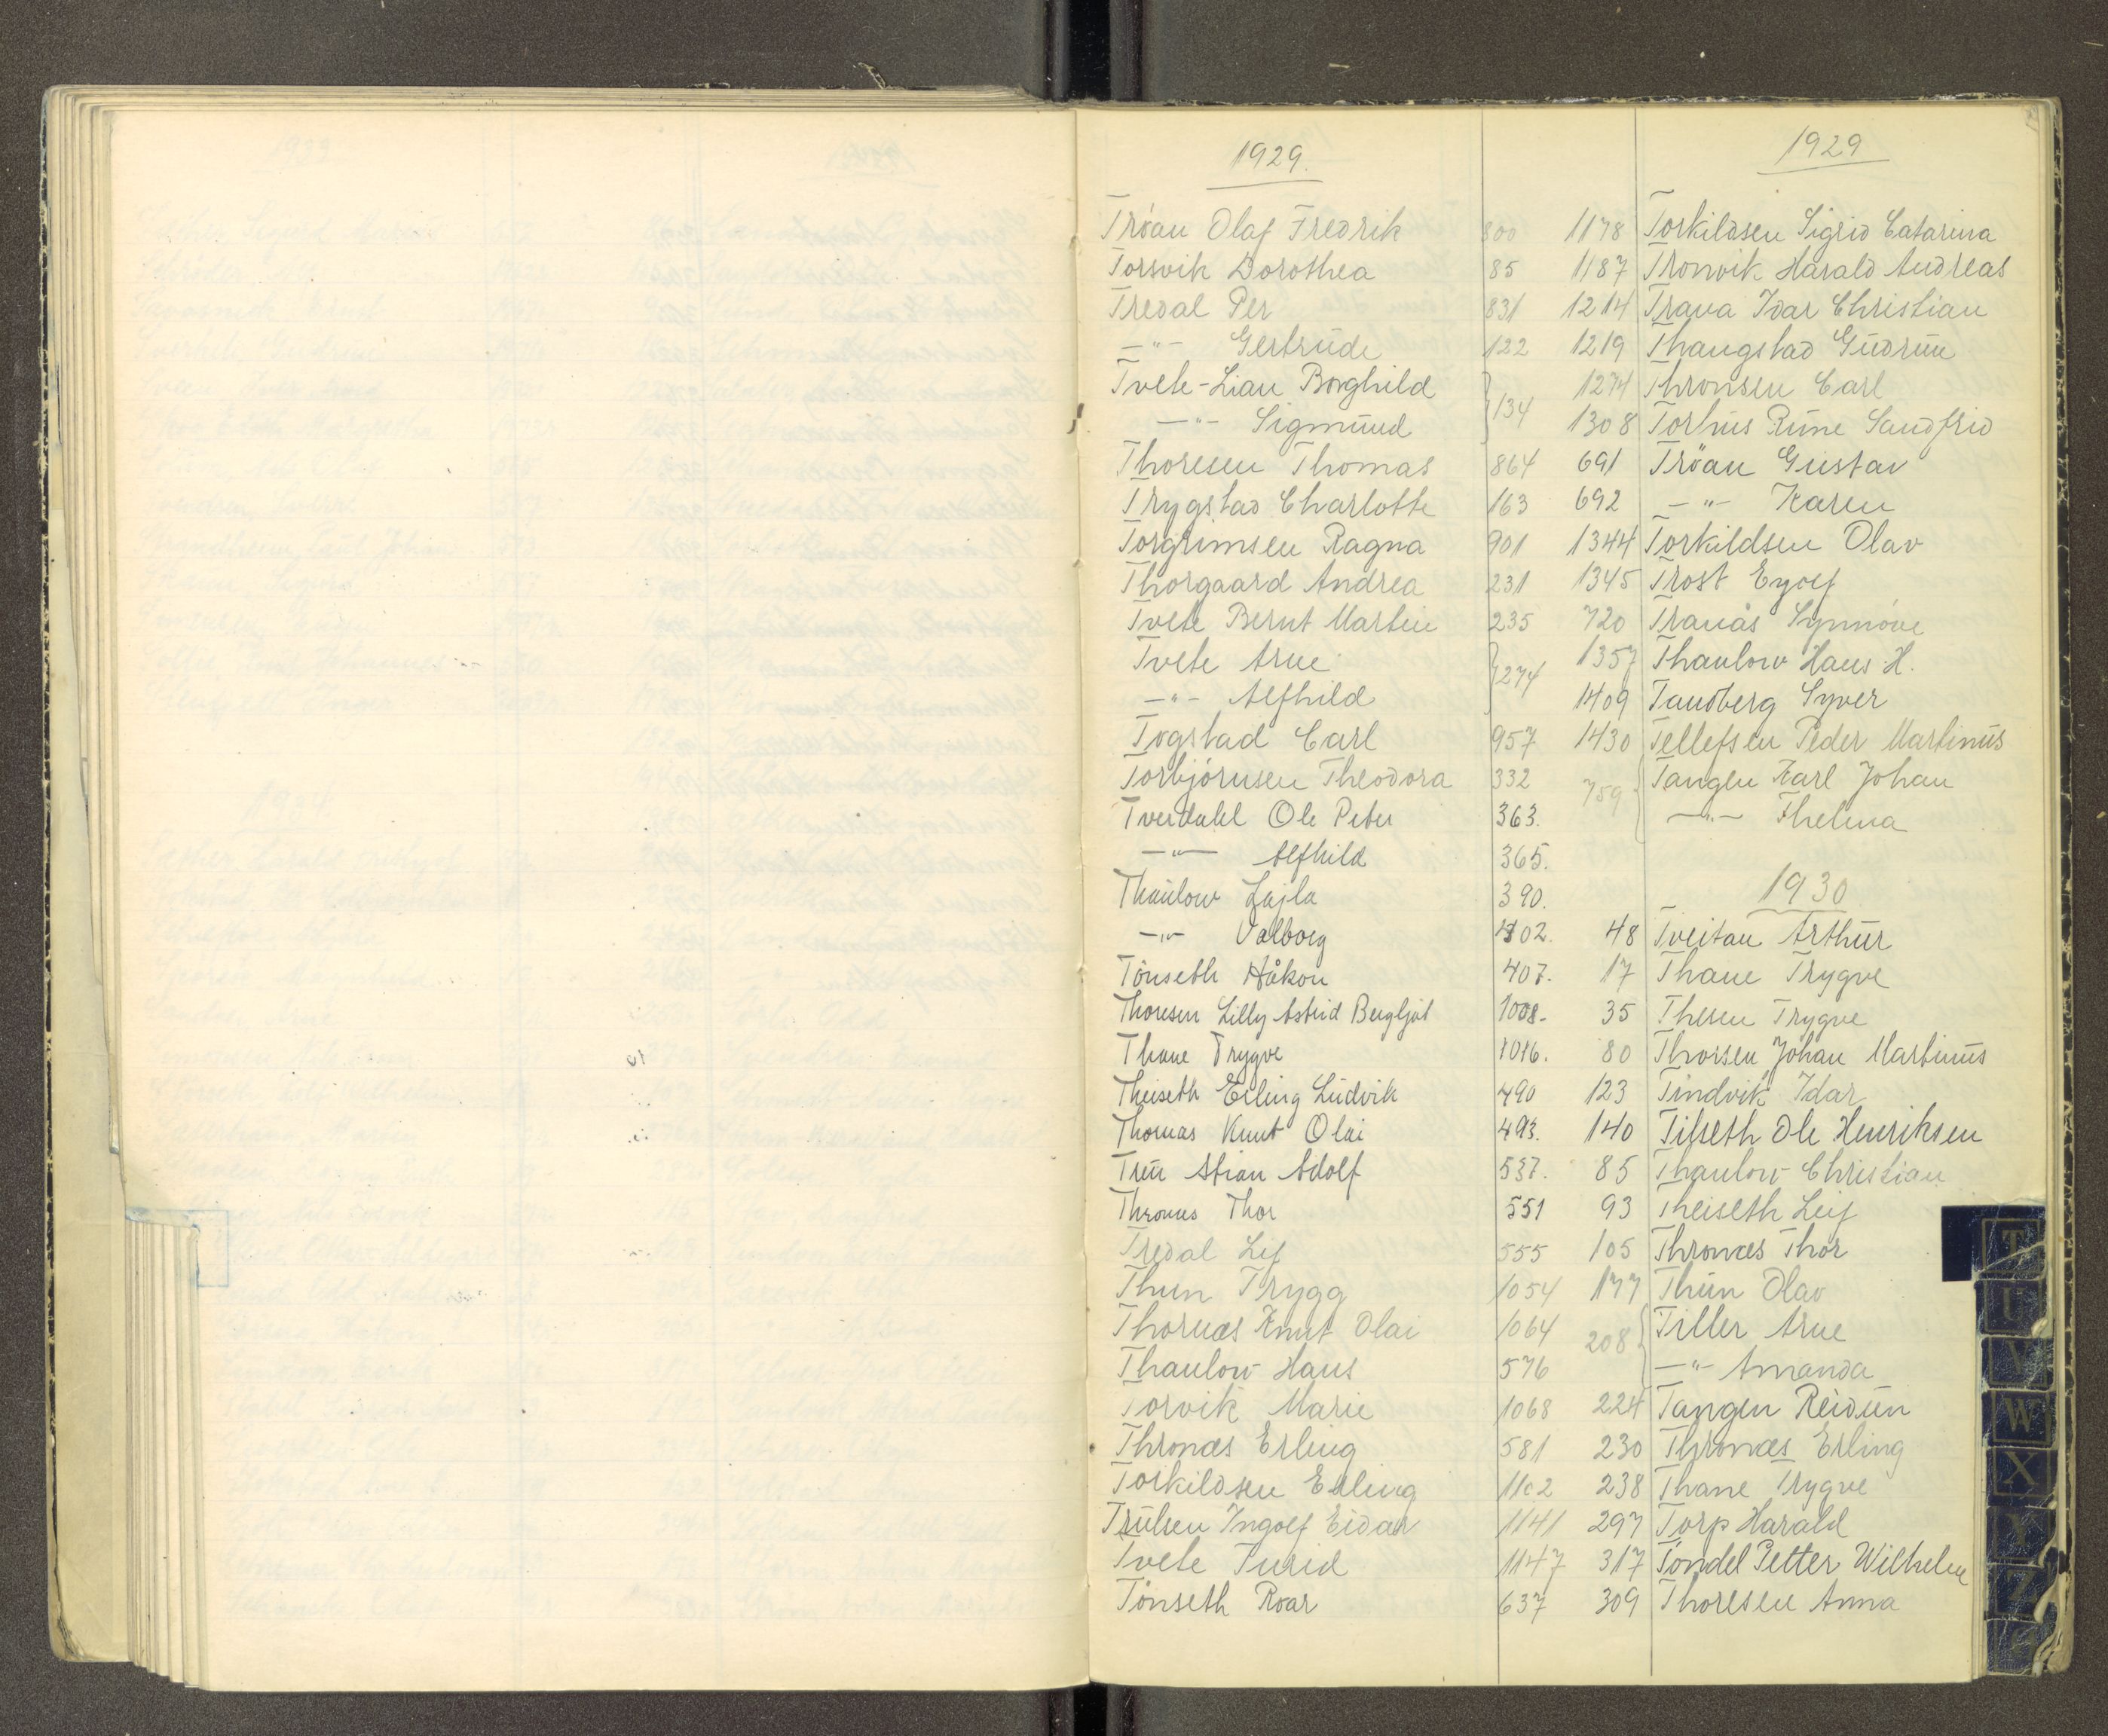 1929.
Trøan Olaf Fredrik 800
Torsvik Dorothea 85
Tredal Per 831
—"— Gertrude 122
Tvete-Lian Borghild } 134
—"— Sigmund
Thoresen Thomas 864
Trygstad Charlotte 163
Torgrimsen Ragna 901
Thorgaard Andrea 231
Tvete Bernt Martin 235
Tvete Arne } 274
—"— Alfhild
Togstad Carl 957
Torbjørnsen Theodora 332
Tverdahl Ole Peter 363.
—"— Alfhild 365.
Thaulow Lajla 390.
—"— Valborg 402.
Tönseth Håkon 407.
Thoresen Lilly Astrid Bergljot 1008-
Thane Trygve 1016.
Theiseth Erling Ludvik 490
Thornæs Knut Olai 493.
Treu Stian Adolf 537.
Thronæs Thor 551
Tredal Leif 555
Thun Trygg 1054
Thornæs Knut Olai 1064
Thaulow Hans 576
Torvik Marie 1068
Thronæs Erling 581
Torkildsen Erling 1102
Trulsen Ingolf Eidar 1141
Tvete Turid 1147
Tönseth Roar 637
1929
1178 Torkildsen Sigrid Catarina
1187 Tronvik Harald Andreas
1214 Trana Ivar Christian
1219 Thangstad Gudrun
1274 Thronsen Carl
1308 Torhus Rune Sandfrid
691 Trøan Gustav
692 —"— Karen
1344 Torkildsen Olav
1345 Trost Eyolf
720 Tranås Synnøve
1357 Thaulow Hans H.
1409 Tandberg Syver
1430 Tellefsen Peder Martinus
759 { Tangen Karl Johan
—"— Thelma
1930
48 Tveitan Arthur
17 Thane Trygve
35 Thesen Trygve
80 Thorsen Johan Martinus
123 Tindvik Idar
140 Tilseth Ole Henriksen
85 Thaulow Christian
93 Theiseth Leif
105 Thronæs Thor
177 Thun Olav
208 { Tiller Arne
—"— Amanda
224 Tangen Reidun
230 Thronæs Erling
238 Thane Trygve
297 Torp Harald
317 Töndel Petter Wilhelm
309 Thoresen Anna
T
U
V
W
X
Y
Z